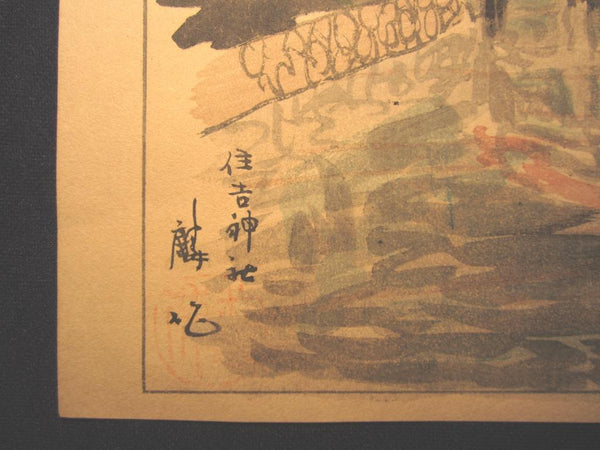 住吉神社
麟作